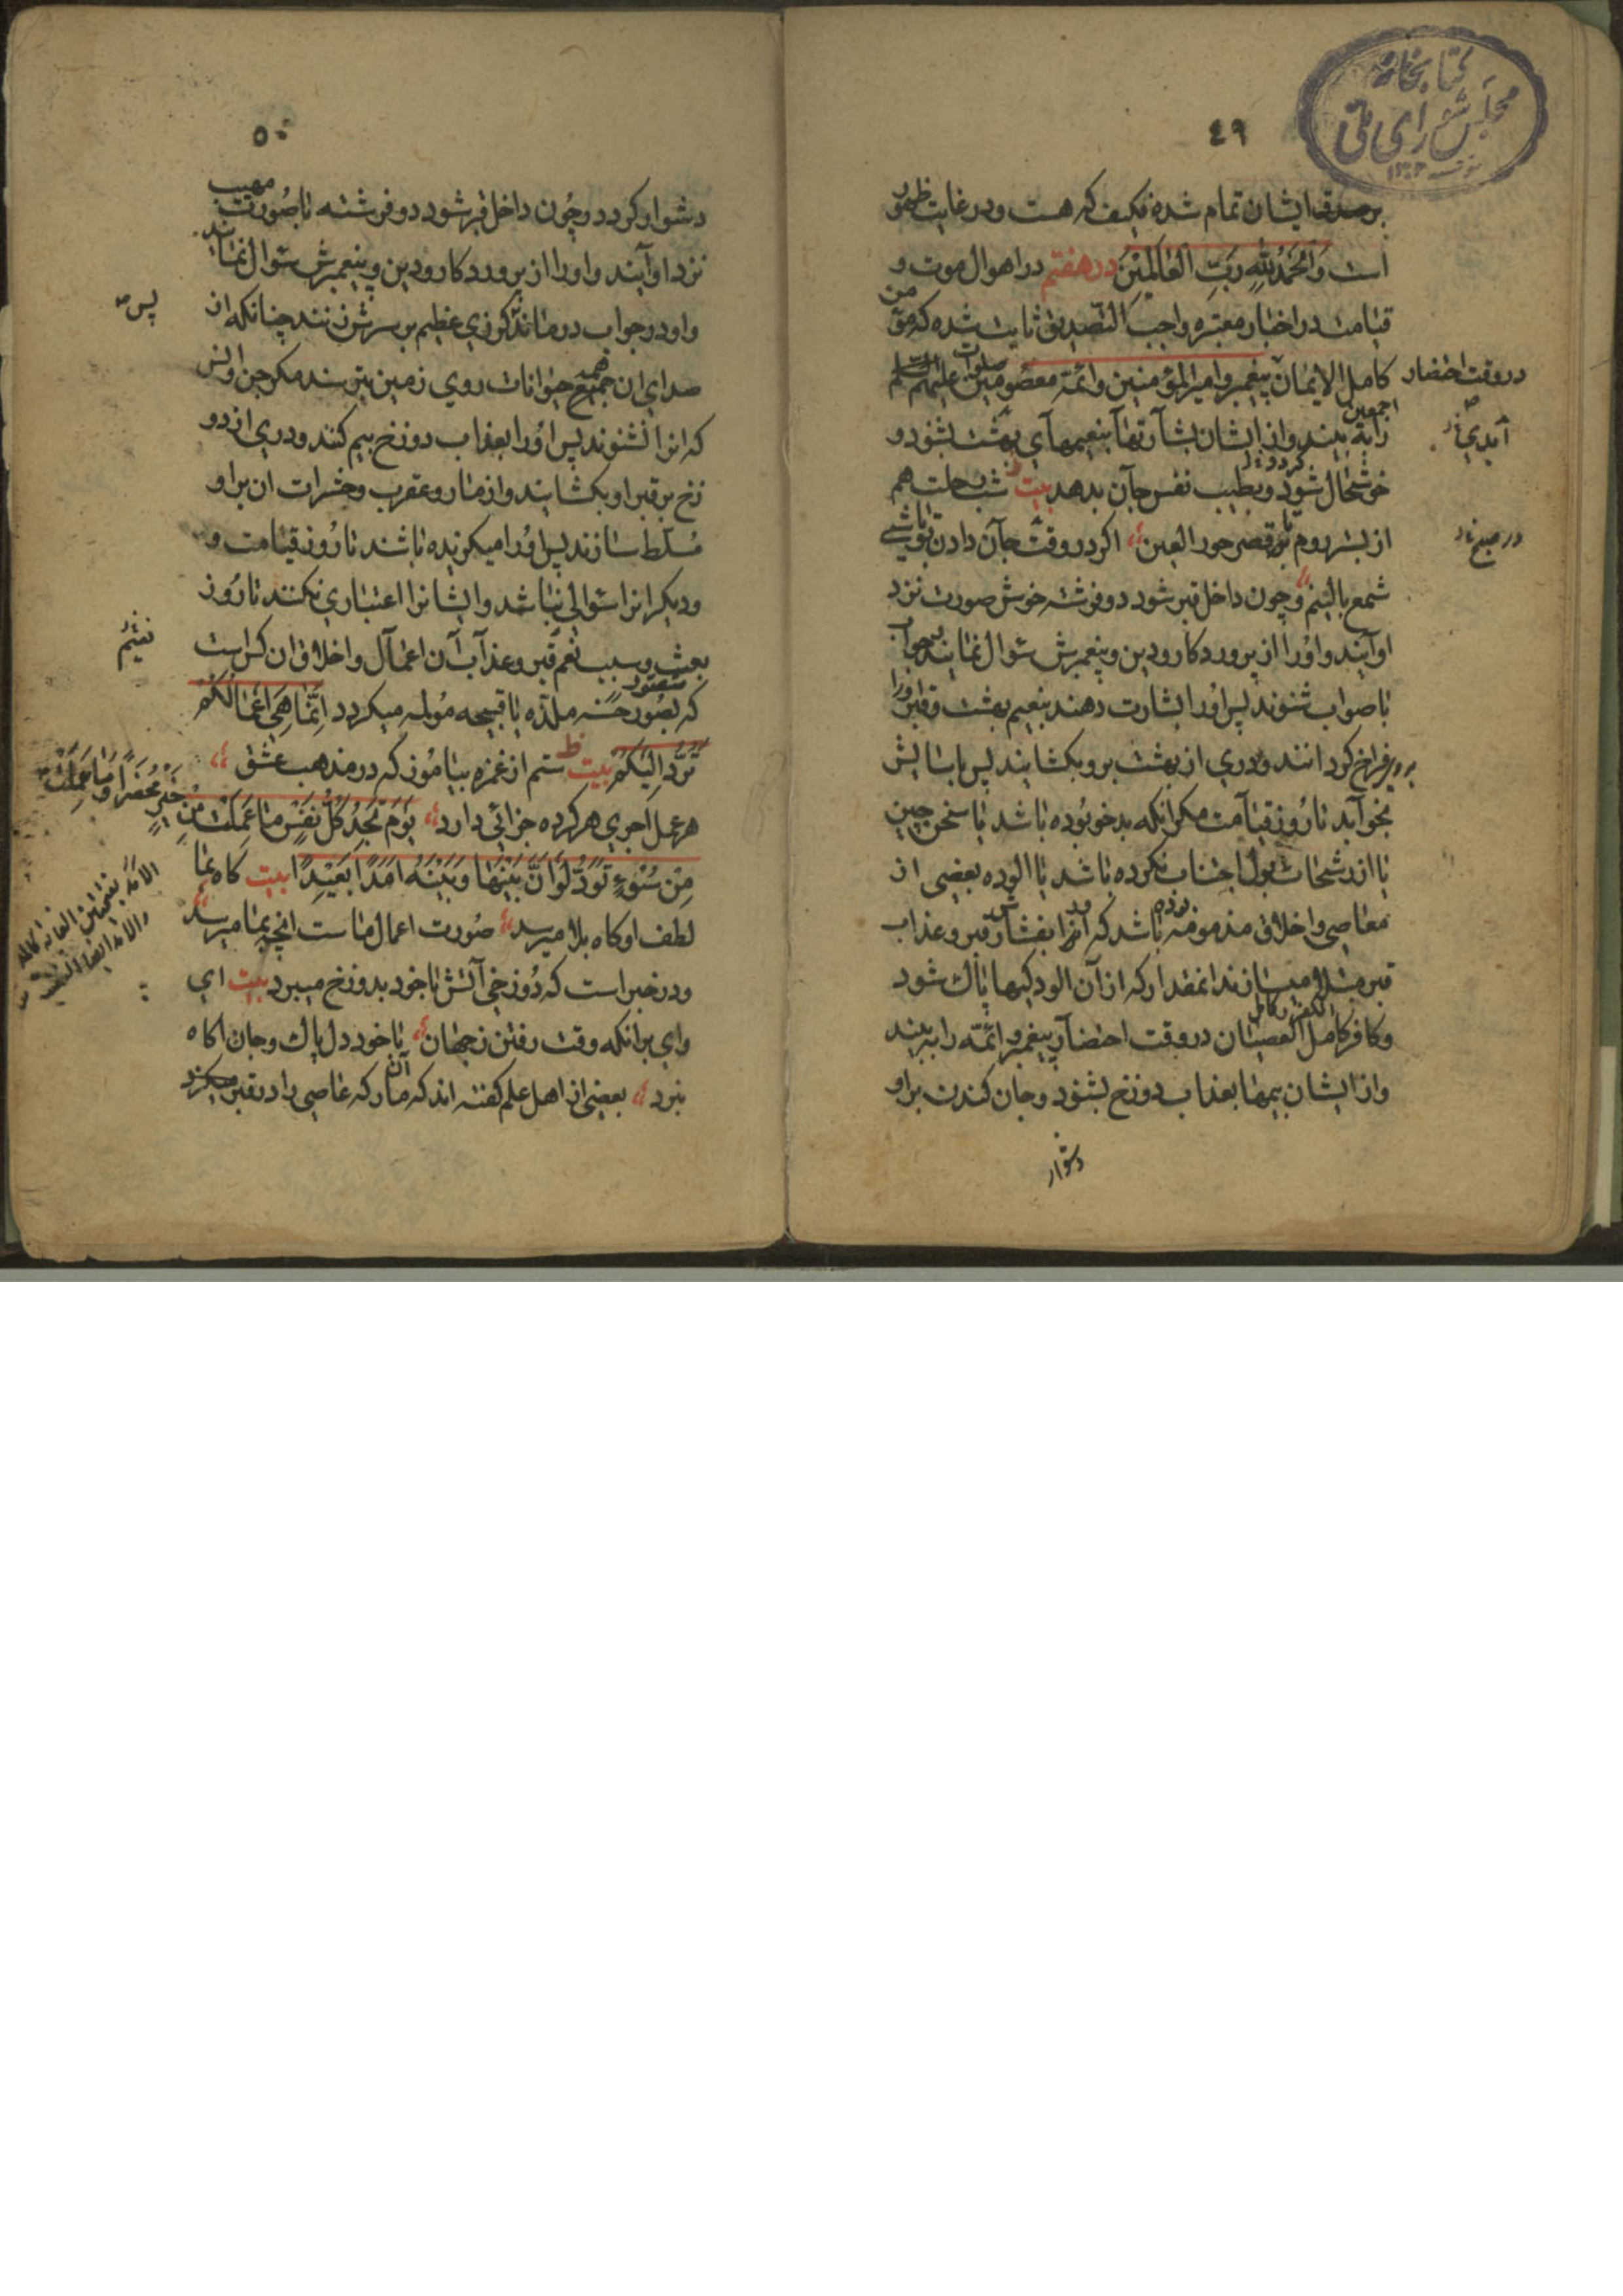 کتابخانه
مجلس شورای ملی
٤٩
بر صدق ایشان تمام شده فکیف که هست و در غایت ظهور
است وَالْحَمْدُ لِلّٰهِ رَبِّ العٰالَمِیْنَ در هفتم در اهوال موت و
قیامت در اخبار معتبره واجب التصدیق ثابت شده که مؤمن
کامل الایمان پیغمبر و امیرالمؤمنین و ائمه معصومین صلوات علیهم
در وقت احتضار
اجمعین
را به بیند و از ایشان بشارتها بنعیمهای بهشت بشنود و
خوشحال شود و بطیب نفس جان بدهد بیت شب رحلت هم
از بستر روم تا قصر حور العین اگر در وقت جان دادن تو باشی
شمع بالینم و چون داخل قبر شود دو فرشته خوش صورت نزد
او آیند و اورا از پروردکار و دین و پیغمبرش سئوال نمایند جواب
با صواب شنوند پس اورا بشارت دهند بنعیم بهشت و قبر اورا
فراخ کردانند و دری از بهشت برو بکشایند پس باسایش
بخوابد تا روز قیامت مکر آنکه بدخو بوده باشد یا سخن چین
یا از رشحات بول اجتناب نکرده باشد یا الوده ببعضی از
معاصی و اخلاق مذمومه بوده باشد که انرا بفشار قبر و عذاب
قبر مبتلا میسازند انمقدار که از آن الودکیها پاک شود
و کافر کامل العصیان در وقت احتضار پیغمبر و ائمه را به بیند
و از ایشان بیمها بعذاب دوزخ بشنود و جان کندن بر او
دشوار
٥٠
دشوار کردد و چون داخل قبر شود دو فرشته با صورت مهیب
نزد او آیند و اورا از پروردکار و دین و پیغمبرش سئوال نمایند
و او در جواب درماند کرزی عظیم بر سرش زنند چنانکه از
پس
صدای ان جمیع حیوانات روی زمین بترسند مکر جن و انس
که انرا نشنوند پس اورا بعذاب دوزخ بیم کنند و دری از دو
زخ بر قبر او بکشایند و از مار و عقرب و حشرات ان بر او
مسلط سازند پس اورا میکزیده باشند تا روز قیامت و
و دیکرانرا سئوالی نباشد و ایشانرا اعتباری نکنند تا روز
بعث و سبب تنعم قبر و عذاب آن اعمال و اخلاق ان کس است
که بصور حسنه ملذه یا قبیحه مولمه میکردد اِنَّمٰا هِیَ اَعْمٰالُکُمْ
تُرَدُّ اِلَیْکُمْ بیت ستم از غمزه بیاموز که در مذهب عشق
هر عمل اجری هر کرده جزائی دارد یَوْمَ تَجِدُ کُلُّ نَفْسٍ مٰا عَمِلَتْ مِنْ
خَیْرٍ مُحْضَرًا وَمٰا عَمِلَتْ
مِنْ سُوْءٍ تَوَدُّ لَوْ اَنَّ بَیْنَهٰا وَبَیْنَهُ اَمَدًا بَعِیْدًا بیت کاه بما
لطف او کاه بلا میرسد صورت اعمال ماست انچه بما میرسد
و در خبر است که دوزخی آتش با خود بدوزخ میبرد بیت ای
وای بر انکه وقت رفتن ز جهان با خود دل پاک و جان اکاه
نبرد بعضی از اهل علم کفته اند که آن مار که عاصی را در قبر میکزد